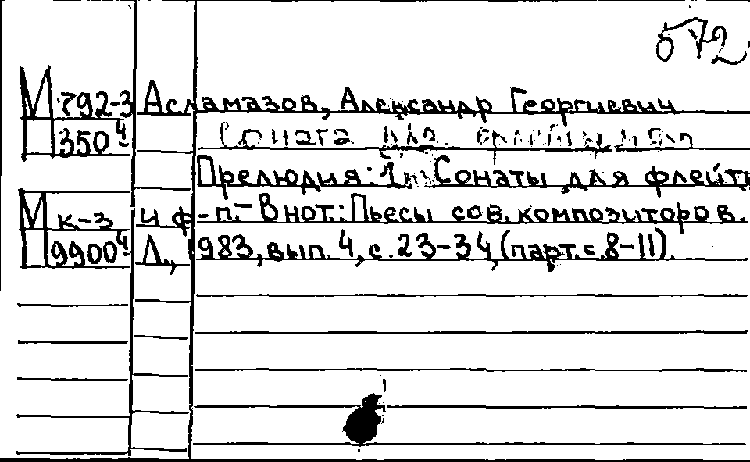 572
М 792-3 Асламазов, Александр Георгиевич
П 350ч Соната для
Прелюдия: 1ч. Сонаты для флейты
М к-3 и ф-п.- В нот.: Пьесы сов. композиторов.
П 9900ч Л., 1983, вып. 4, с. 23-34, (парт. с. 8-11).